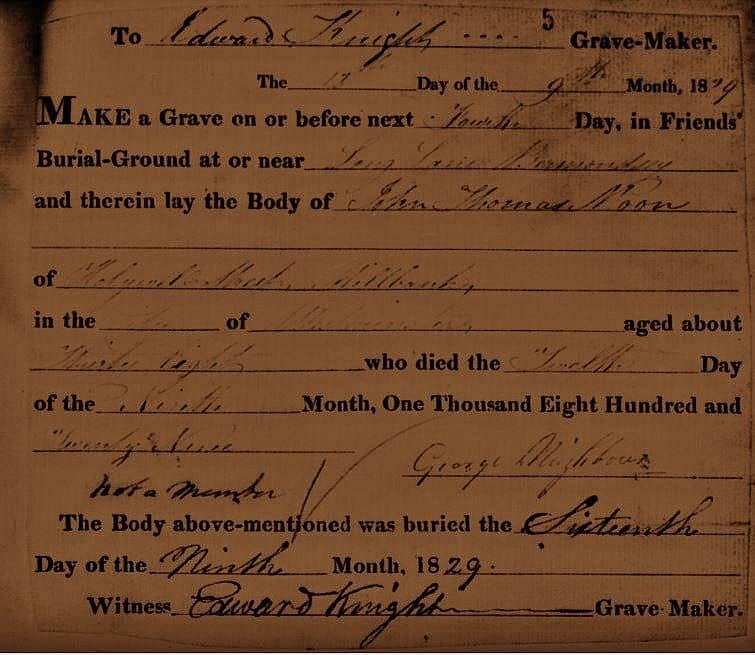 5
To Edward Knight .... Grave-Maker.
The 13th Day of the 9th Month, 1829
MAKE a Grave on or before next Fourth Day, in Friends'
Burial-Ground at or near Long Lane Bermondsey
and therein lay the Body of John Thomas Noon
of Street, Millbank,
in the of aged about
Thirty eight who died the Twelfth Day
of the Ninth Month, One Thousand Eight Hundred and
Twenty Nine
George Neighbour
Not a member
The Body above-mentioned was buried the Sixteenth
Day of the Ninth Month, 1829.
Witness Edward Knight Grave-Maker.